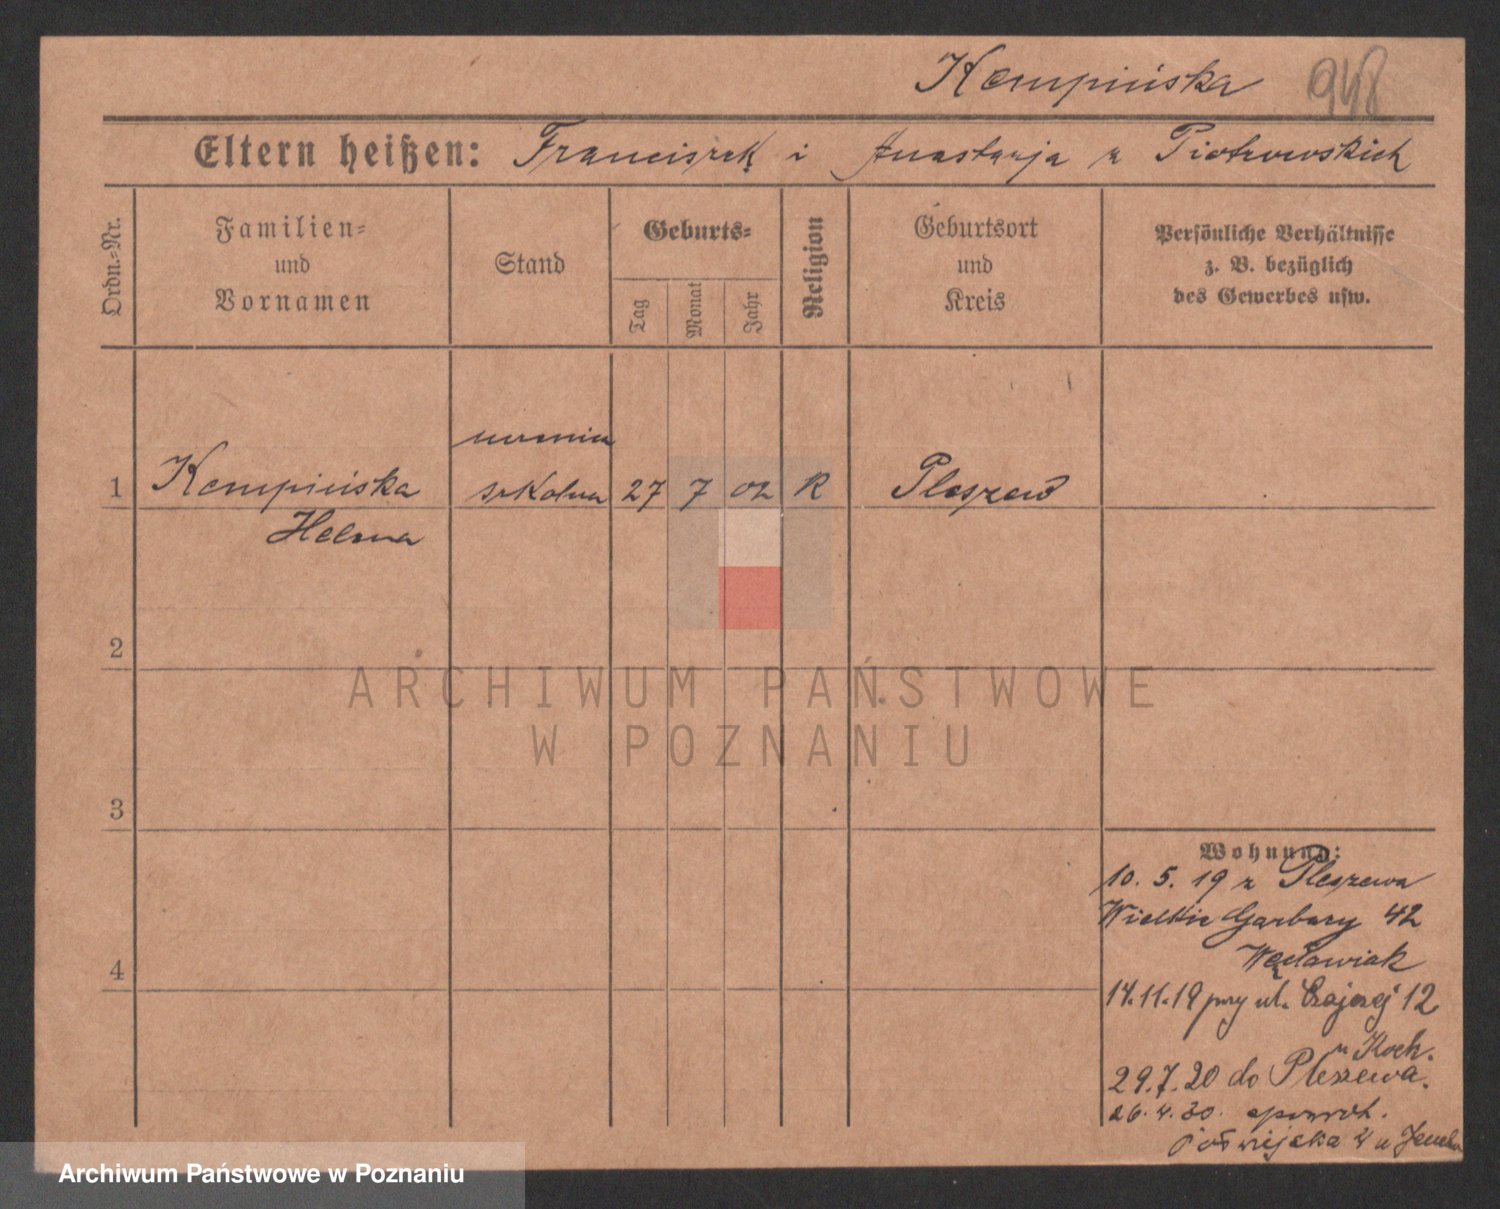 Kempińska 948
Eltern heißen: Franciszek i Anastazja z Piotrowskich
Ordn.-Nr.
Familien-
und
Vornamen
Stand
Geburts-
Tag
Monat
Jahr
Religion
Geburtsort
und
Kreis
Persönliche Verhältnisse
z. B. bezüglich
des Gewerbes usw.
1
Kempińska
Helena
szkolna
27 7 02 R Pleszew
2
3
4
Wohnung:
10. 5. 19 z Pleszewa
Wielkie Garbary 42
Węcławiak
14.11.19 przy ul. 12
u Koch.
29.7.20 do Pleszewa.
26. 4. 30.
Półwiejska u
ARCHIWUM PAŃSTWOWE
W POZNANIU
Archiwum Państwowe w Poznaniu